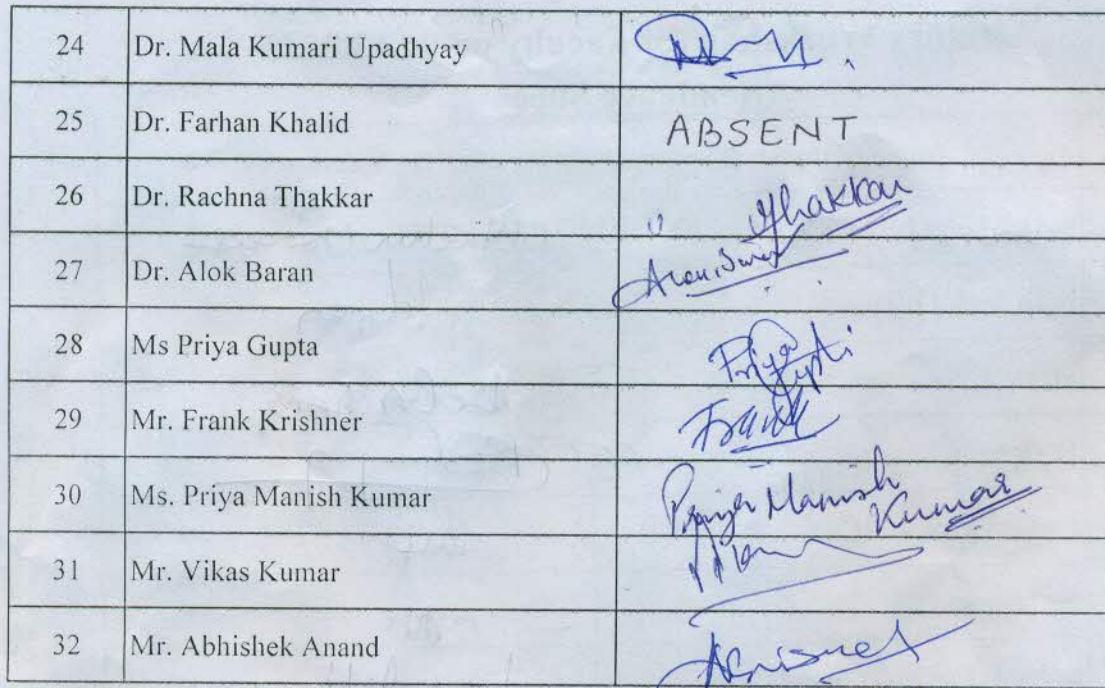 24 Dr. Mala Kumari Upadhyay
25 Dr. Farhan Khalid ABSENT
26 Dr. Rachna Thakkar Thakkar
27 Dr. Alok Baran
28 Ms Priya Gupta Priya Gupta
29 Mr. Frank Krishner Frank
30 Ms. Priya Manish Kumar Priya Manish Kumar
31 Mr. Vikas Kumar
32 Mr. Abhishek Anand